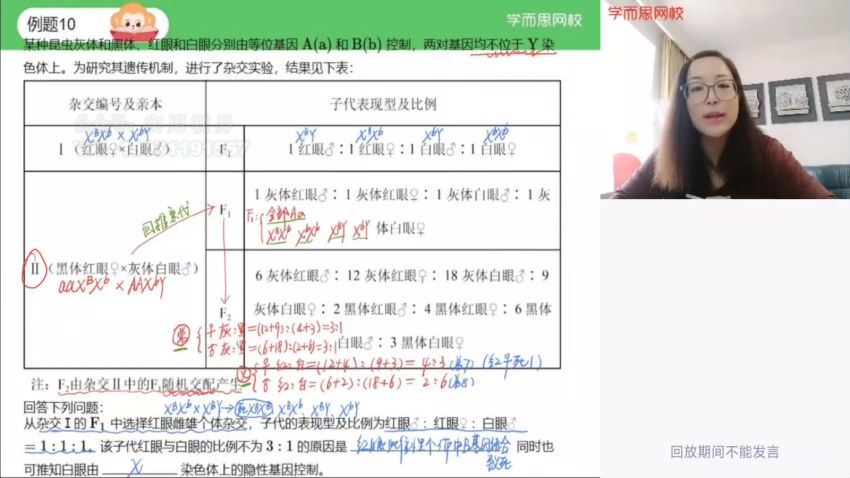 例题10
学而思网校
学而思网校
某种昆虫灰体和黑体、红眼和白眼分别由等位基因 A(a) 和 B(b) 控制，两对基因均不位于 Y 染
色体上。为研究其遗传机制，进行了杂交实验，结果见下表：
杂交编号及亲本
子代表现型及比例
XᴮXᵇ × XᵇY
XᴮY XᴮXᵇ XᵇY XᵇXᵇ
Ⅰ（红眼♀×白眼♂）
F₁
1 红眼♂：1 红眼♀：1 白眼♂：1 白眼♀
回推亲代
1 灰体红眼♂：1 灰体红眼♀：1 灰体白眼♂：1 灰
F₁
F₁: 全部Aa
体白眼♀
XᴮXᵇ XᵇXᵇ XᴮY XᵇY
Ⅱ（黑体红眼♀×灰体白眼♂）
aaXᴮXᵇ × AAXᵇY
6 灰体红眼♂：12 灰体红眼♀：18 灰体白眼♂：9
F₂
灰体白眼♀：2 黑体红眼♂：4 黑体红眼♀：6 黑体
常
♀灰:黑=(12+9):(4+3)=3:1
白眼♂：3 黑体白眼♀
♂灰:黑=(6+18):(2+6)=3:1
X
♀红:白=(12+4):(9+3)=4:3
♂红:白=(6+2):(18+6)=2:6
注：F₂由杂交Ⅱ中的F₁随机交配产生
回答下列问题：
XᴮXᵇ×XᴮY→ XᴮXᴮ XᴮXᵇ XᴮY XᵇY
从杂交Ⅰ的 F₁ 中选择红眼雌雄个体杂交，子代的表现型及比例为红眼♂：红眼♀：白眼♂
=1：1：1。该子代红眼与白眼的比例不为 3：1 的原因是
同时也
致死
可推知白眼由 X 染色体上的隐性基因控制。
回放期间不能发言